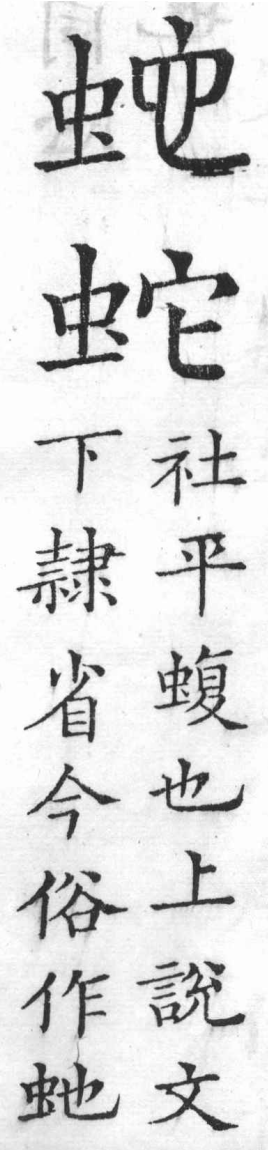 蛇
社平蝮也上說文
下隸省今俗作虵